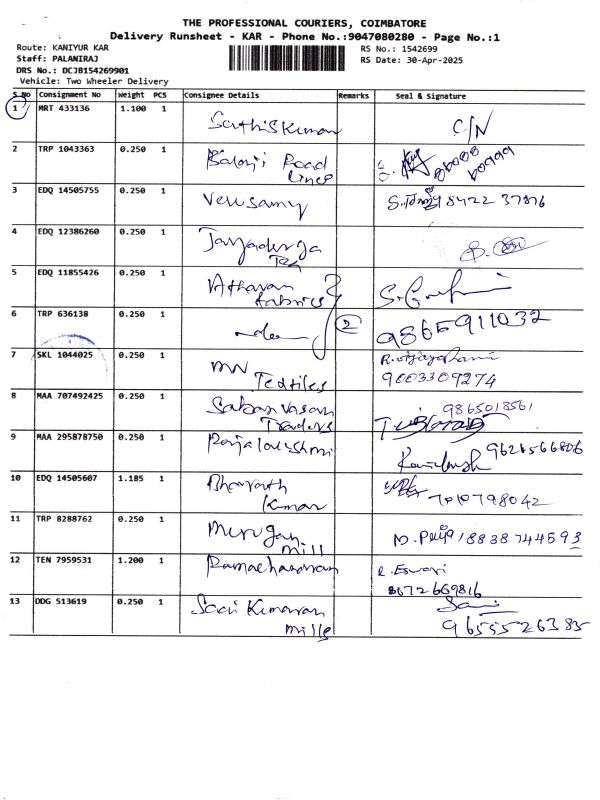 THE PROFESSIONAL COURIERS, COIMBATORE
Delivery Runsheet - KAR - Phone No.:9047080280 - Page No.:1
Route: KANIYUR KAR
RS No.: 1542699
Staff: PALANIRAJ
RS Date: 30-Apr-2025
DRS No.: DCJB154269901
Vehicle: Two Wheeler Delivery
S No Consignment No Weight PCS Consignee Details Remarks Seal & Signature
1 MRT 433136 1.100 1
Sathiskumar C/N
2 TRP 1043363 0.250 1
Balaji Road
Lines
3 EDQ 14505755 0.250 1
Verusamy 8422 37816
4 EDQ 12386260 0.250 1
Tex
5 EDQ 11855426 0.250 1
Atharan
fabrics
6 TRP 636138 0.250 1
2 9865911032
7 SKL 1044025 0.250 1
MN R. Vijayarani
Textiles 9003309274
8 MAA 707492425 0.250 1
Sabarivasan 9865018561
Traders
9 MAA 295878750 0.250 1
Rajalakshmi 9626566806
10 EDQ 14505607 1.185 1
Bharath
Kumar 7010798042
11 TRP 8288762 0.250 1
Murugan
Mill 8838744593
12 TEN 7959531 1.200 1
Ramachandran R. Eswari
8072669816
13 DDG 513619 0.250 1
Kumaran
mills 9655526385